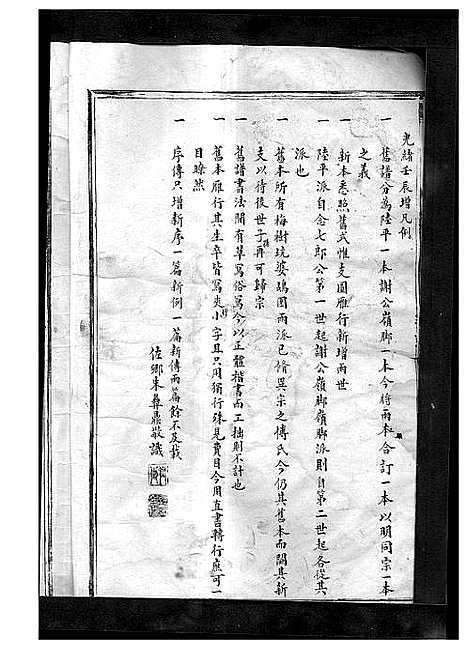 光緒壬辰增凡例
一 舊譜分為陸平一本謝公嶺腳一本今將兩本合訂一本以明同宗一本
之義
一 新本悉照舊式惟支圖雁行新增兩世
一 陸平派自念七郎公第一世起謝公嶺腳嶺腳派則自第二世起各從其
派也
一 舊本所有梅樹坑婆鴣圓兩派已脩異宗之傳氏今仍其舊本而闕其新
支以待後世子孫再可歸宗
一 舊譜書法間有草寫俗寫今以正體楷書而工拙則不計也
一 舊本雁行其生卒皆寫夾行小字且只用獨行殊見費目今用直書轉行庶可一
目瞭然
一 序傳只增新序一篇新例一篇新傳兩篇餘不及載
佐鄉朱彝鼎敬識